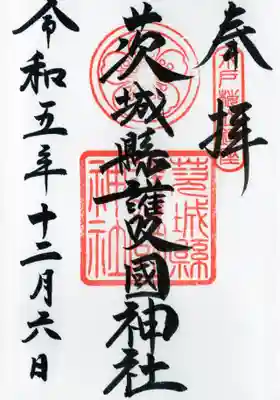 奉拝
茨城縣護國神社
令和五年十二月六日
茨城縣
護國
神社